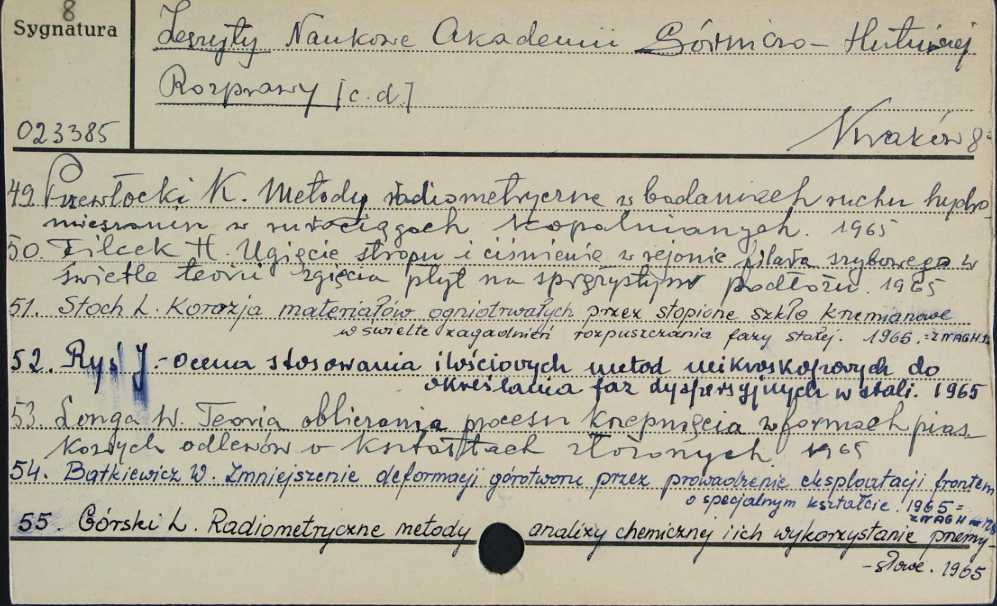 8
Sygnatura
Zeszyty Naukowe Akademii Górniczo-Hutniczej
Rozprawy [c.d.]
023385
Kraków 8°
49. Przewłocki K. Metody radiometryczne w badaniach ruchu hydro-
mieszanin w rurociągach kopalnianych. 1965
50. Filcek H. Ugięcie stropu i ciśnienie w rejonie filara szybowego w
świetle teorii zgięcia płyt na sprężystym podłożu. 1965
51. Stoch L. Korozja materiałów ogniotrwałych przez stopione szkło krzemianowe
w świetle zagadnień rozpuszczania fazy stałej. 1965. = ZNAGH
52. Ryś J. - Ocena stosowania ilościowych metod mikroskopowych do
określania faz dyspersyjnych w stali. 1965
53. Longa W. Teoria obliczania procesu krzepnięcia w formach pias-
kowych odlewów o kształtach złożonych 1965
54. Batkiewicz W. Zmniejszenie deformacji górotworu przez prowadzenie eksploatacji frontem
o specjalnym kształcie. 1965 =
ZNAGH nr
55. Górski L. Radiometryczne metody analizy chemicznej i ich wykorzystanie przemy-
-słowe. 1965